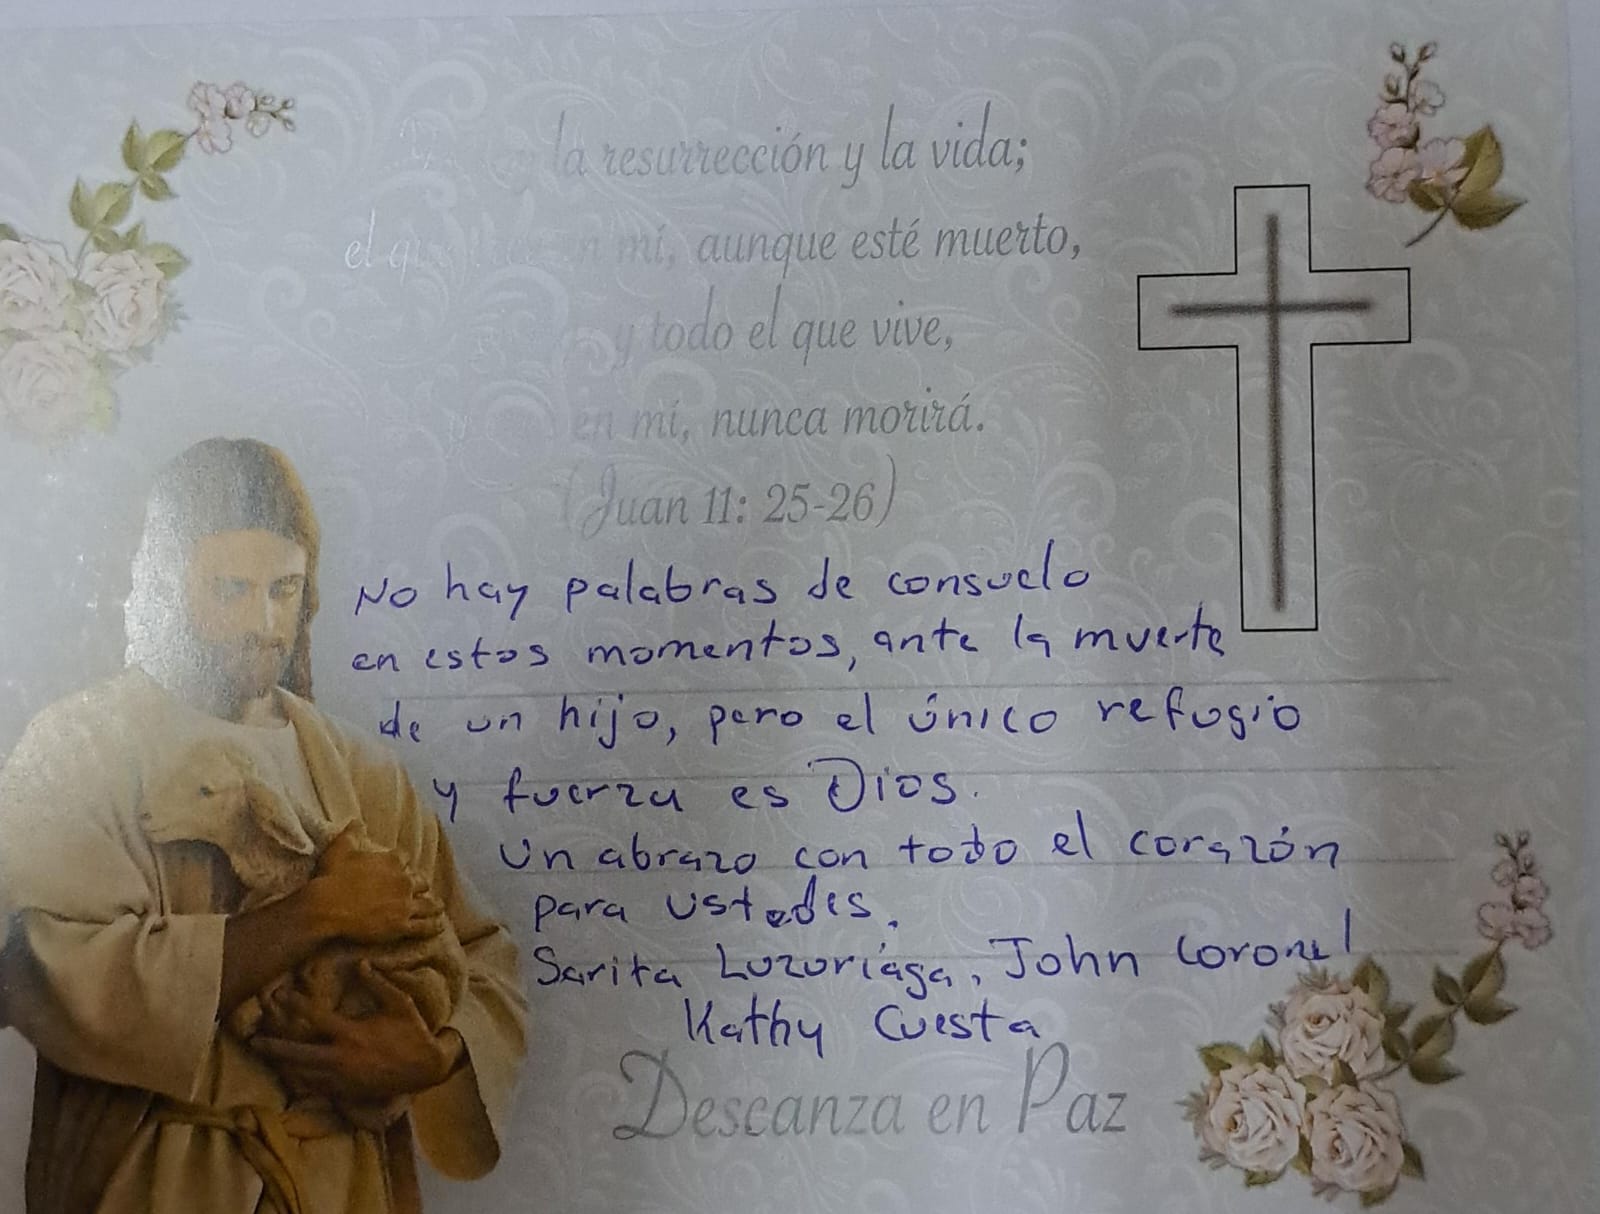 la resurrección y la vida;
el que en mí, aunque esté muerto,
y todo el que vive,
en mí, nunca morirá.
(Juan 11: 25-26)
No hay palabras de consuelo
en estos momentos, ante la muerte
de un hijo, pero el único refugio
y fuerza es Dios.
Un abrazo con todo el corazón
para ustedes.
Sarita Luzuriaga, John Coronel
Kathy Cuesta
Descanza en Paz